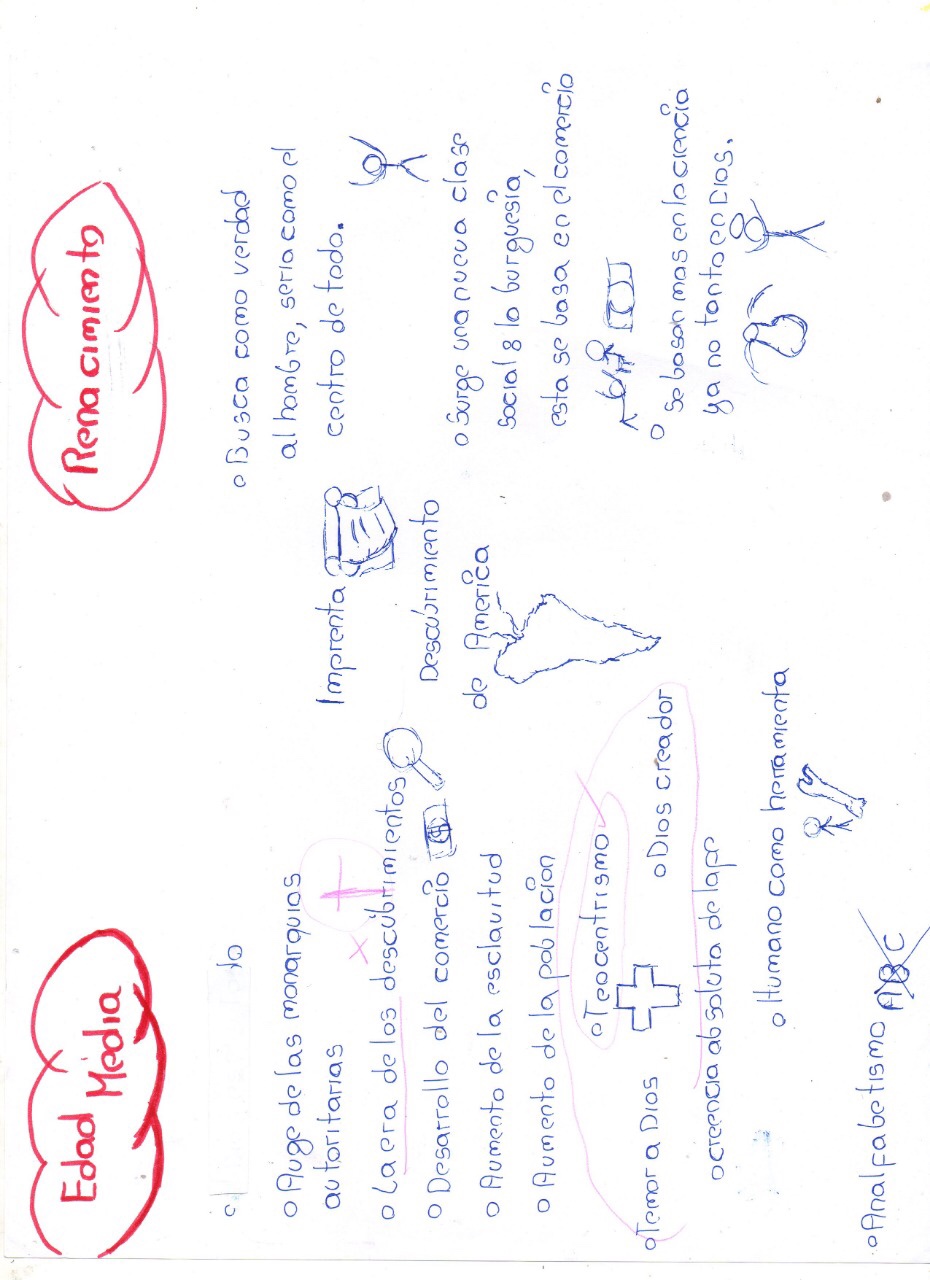 Edad
Média
do
o Auge de las monarquias
autoritarias
o La era de los descubrimientos
o Desarrollo del comercio
o Aumento de la esclavitud
o Aumento de la poblacion
o Teocentrismo
o Temor a Dios
o Dios creador
o creencia absoluta de la
o Humano como herramienta
o Analfabetismo ABC
Imprenta
Descubrimiento
de America
Renacimiento
o Busca como verdad
al hombre, seria como el
centro de todo.
o Surge una nueva clase
social 8 la burguesia,
esta se basa en el comercio
o
se basan mas en la ciencia
ya no tanto en Dios.